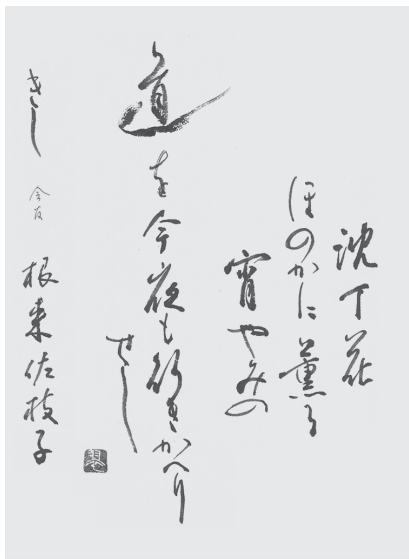 沈丁花
ほのかに薫る
宵やみの
道を今夜も行きかへり
せし
きし 根来佐枝子